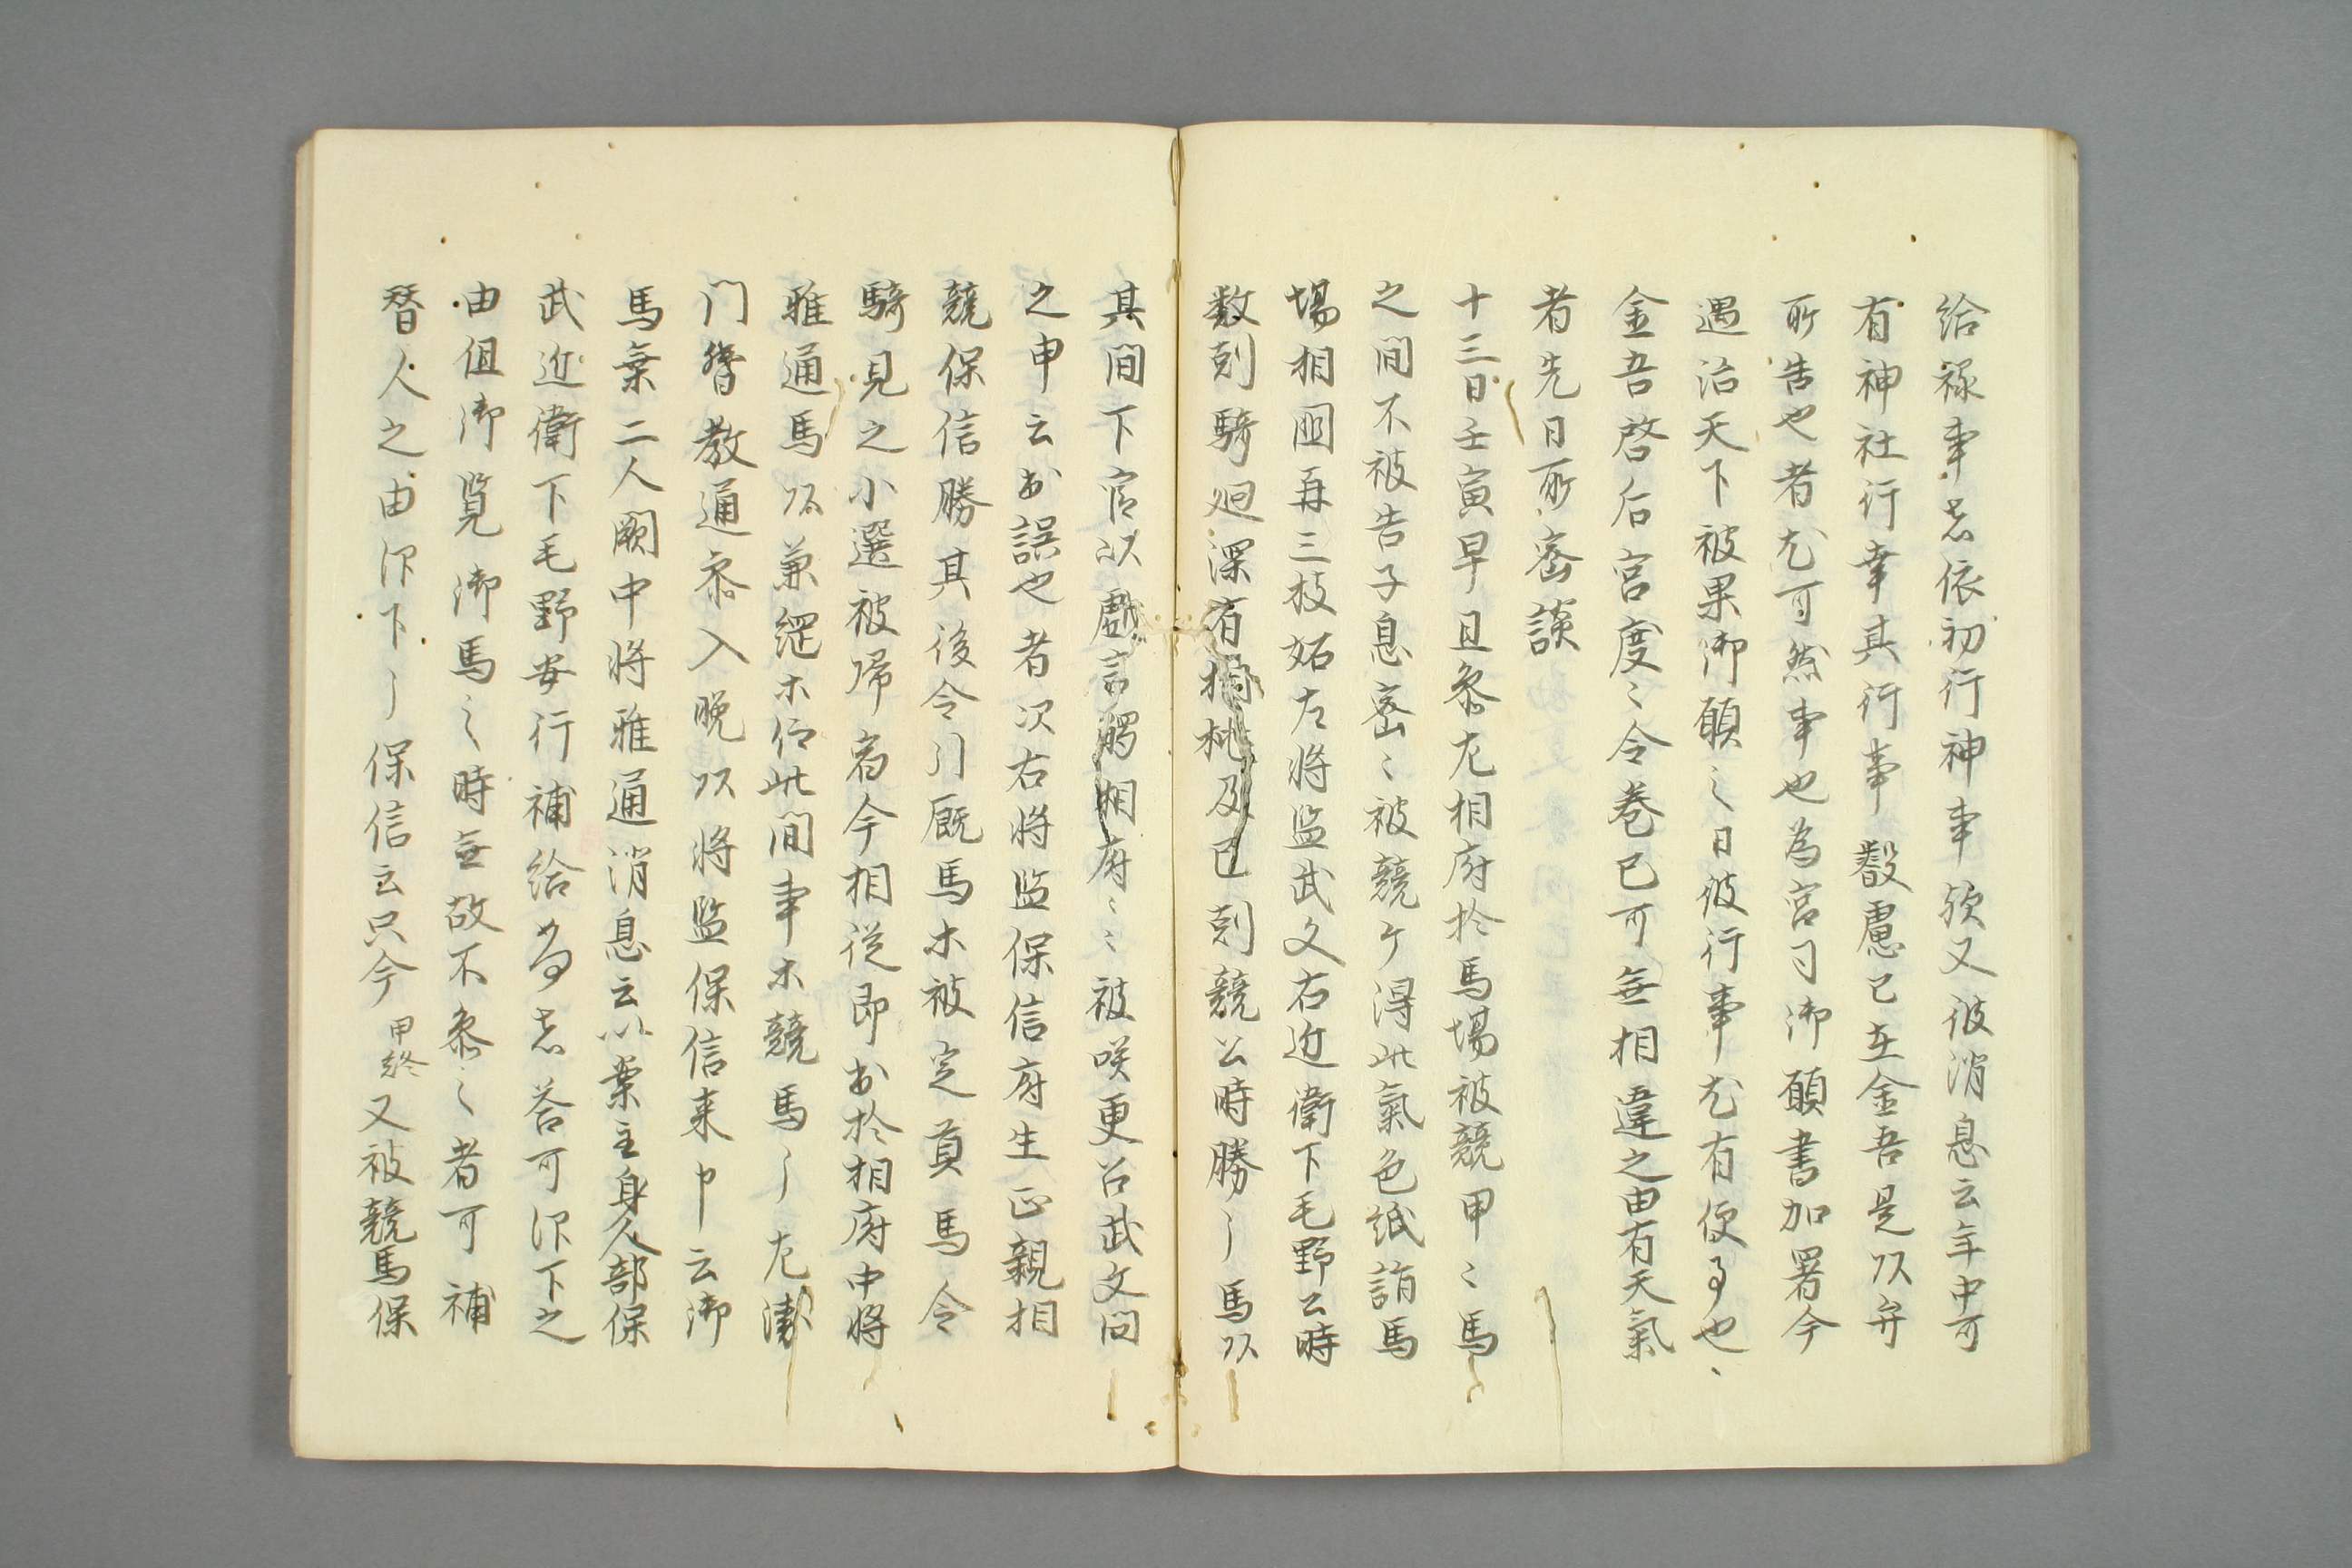 給禄事者依初行神事欤又彼消息云年中可
有神社行幸其行事叡慮已在金吾是以弁
所告也者尤可然事也為宮司御願書加署今
遇治天下被果御願之日彼行事尤有便事也、
金吾啓后宮度々令巻已可無相違之由有天氣
者先日所密談
十三日壬寅早旦参左相府於馬場被競甲々馬
之間不被告子息密々被競ケ得此氣色紙誚馬
場相囲再三技妬左将監武文右近衛下毛野公時
数剋騎廻深有相挑及已剋競公時勝了馬以
其間下官以戯言觸相府々被咲更召武文問
之申云出誤也者次右将監保信府生正親相
競保信勝其後令引厩馬木被定員馬令
騎見之小選被帰宿今相従即出於相府中将
雅通馬以兼綱木仰此間事木競馬了左
門督教通参入晩以将監保信来申云御
馬乗二人闕中将雅通消息云以案主身人部保
武近衛下毛野安行補給為者答可仰下之
由但御覧御馬之時無故不参之者可補
替人之由仰下了保信云只今甲終又被競馬保